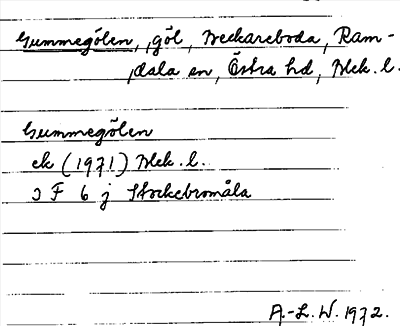 Gummegölen, göl, Weckareboda, Ram-
dala sn, Östra hd, Blek. l.
Gummegölen
ek (1971) Blek. l.
3 F 6 j Stockebromåla
A.-L. W. 1972.